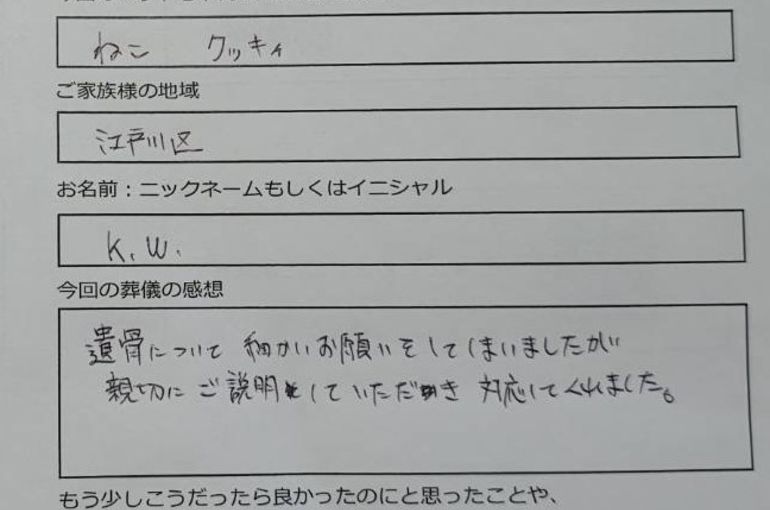 ねこ クッキィ
ご家族様の地域
江戸川区
お名前：ニックネームもしくはイニシャル
K.W.
今回の葬儀の感想
遺骨について 細かいお願いをしてしまいましたが
親切に ご説明をしていただき 対応してくれました。
もう少しこうだったら良かったのにと思ったことや、